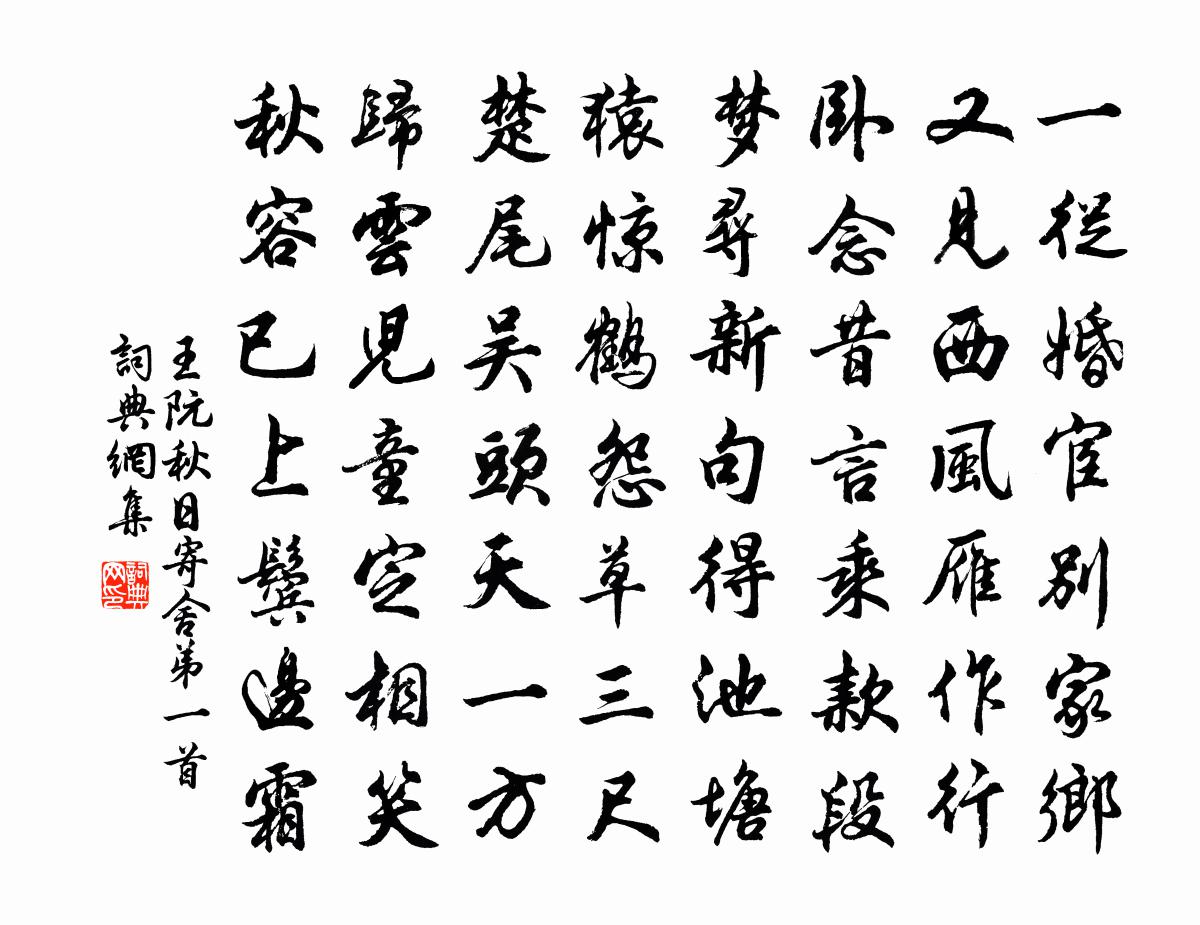 一從婚宦別家鄉
又見西風雁作行
臥念昔言乘款段
梦尋新句得池塘
猿惊鶴怨草三尺
楚尾吴頭天一方
歸雲児童定相笑
秋容已上鬓邊霜
王阮秋日寄舍弟一首
詞典網集
詞典网印